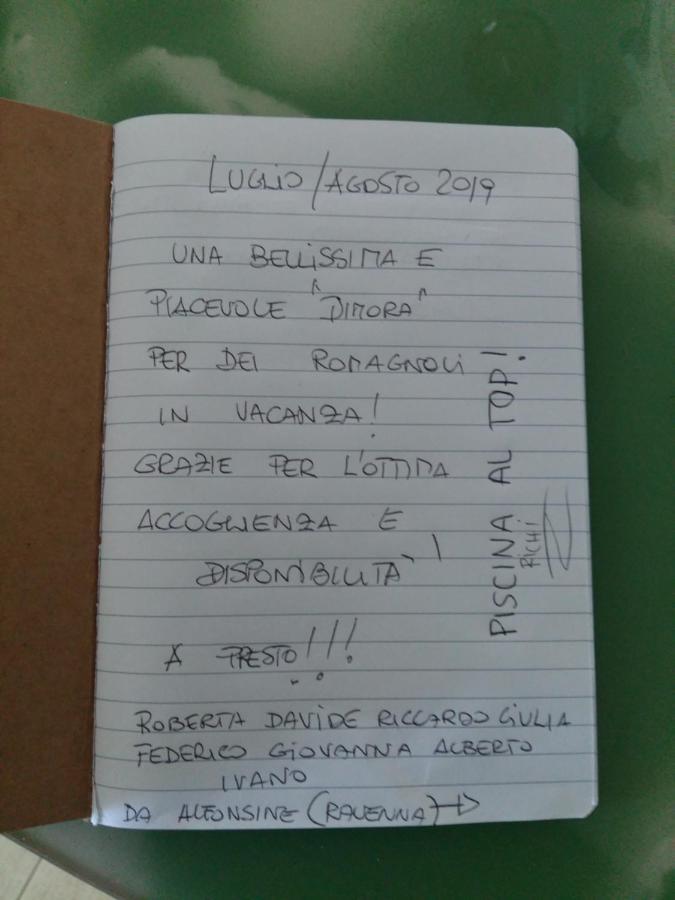 LUGLIO/AGOSTO 2019
UNA BELLISSIMA E
PIACEVOLE "DIMORA"
PER DEI ROMAGNOLI
IN VACANZA!
GRAZIE PER L'OTTIMA
ACCOGLIENZA E
DISPONIBILITA'!
A PRESTO!!!
ROBERTA DAVIDE RICCARDO GIULIA
FEDERICO GIOVANNA ALBERTO
IVANO
DA ALFONSINE (RAVENNA)
PISCINA AL TOP!
RICHI